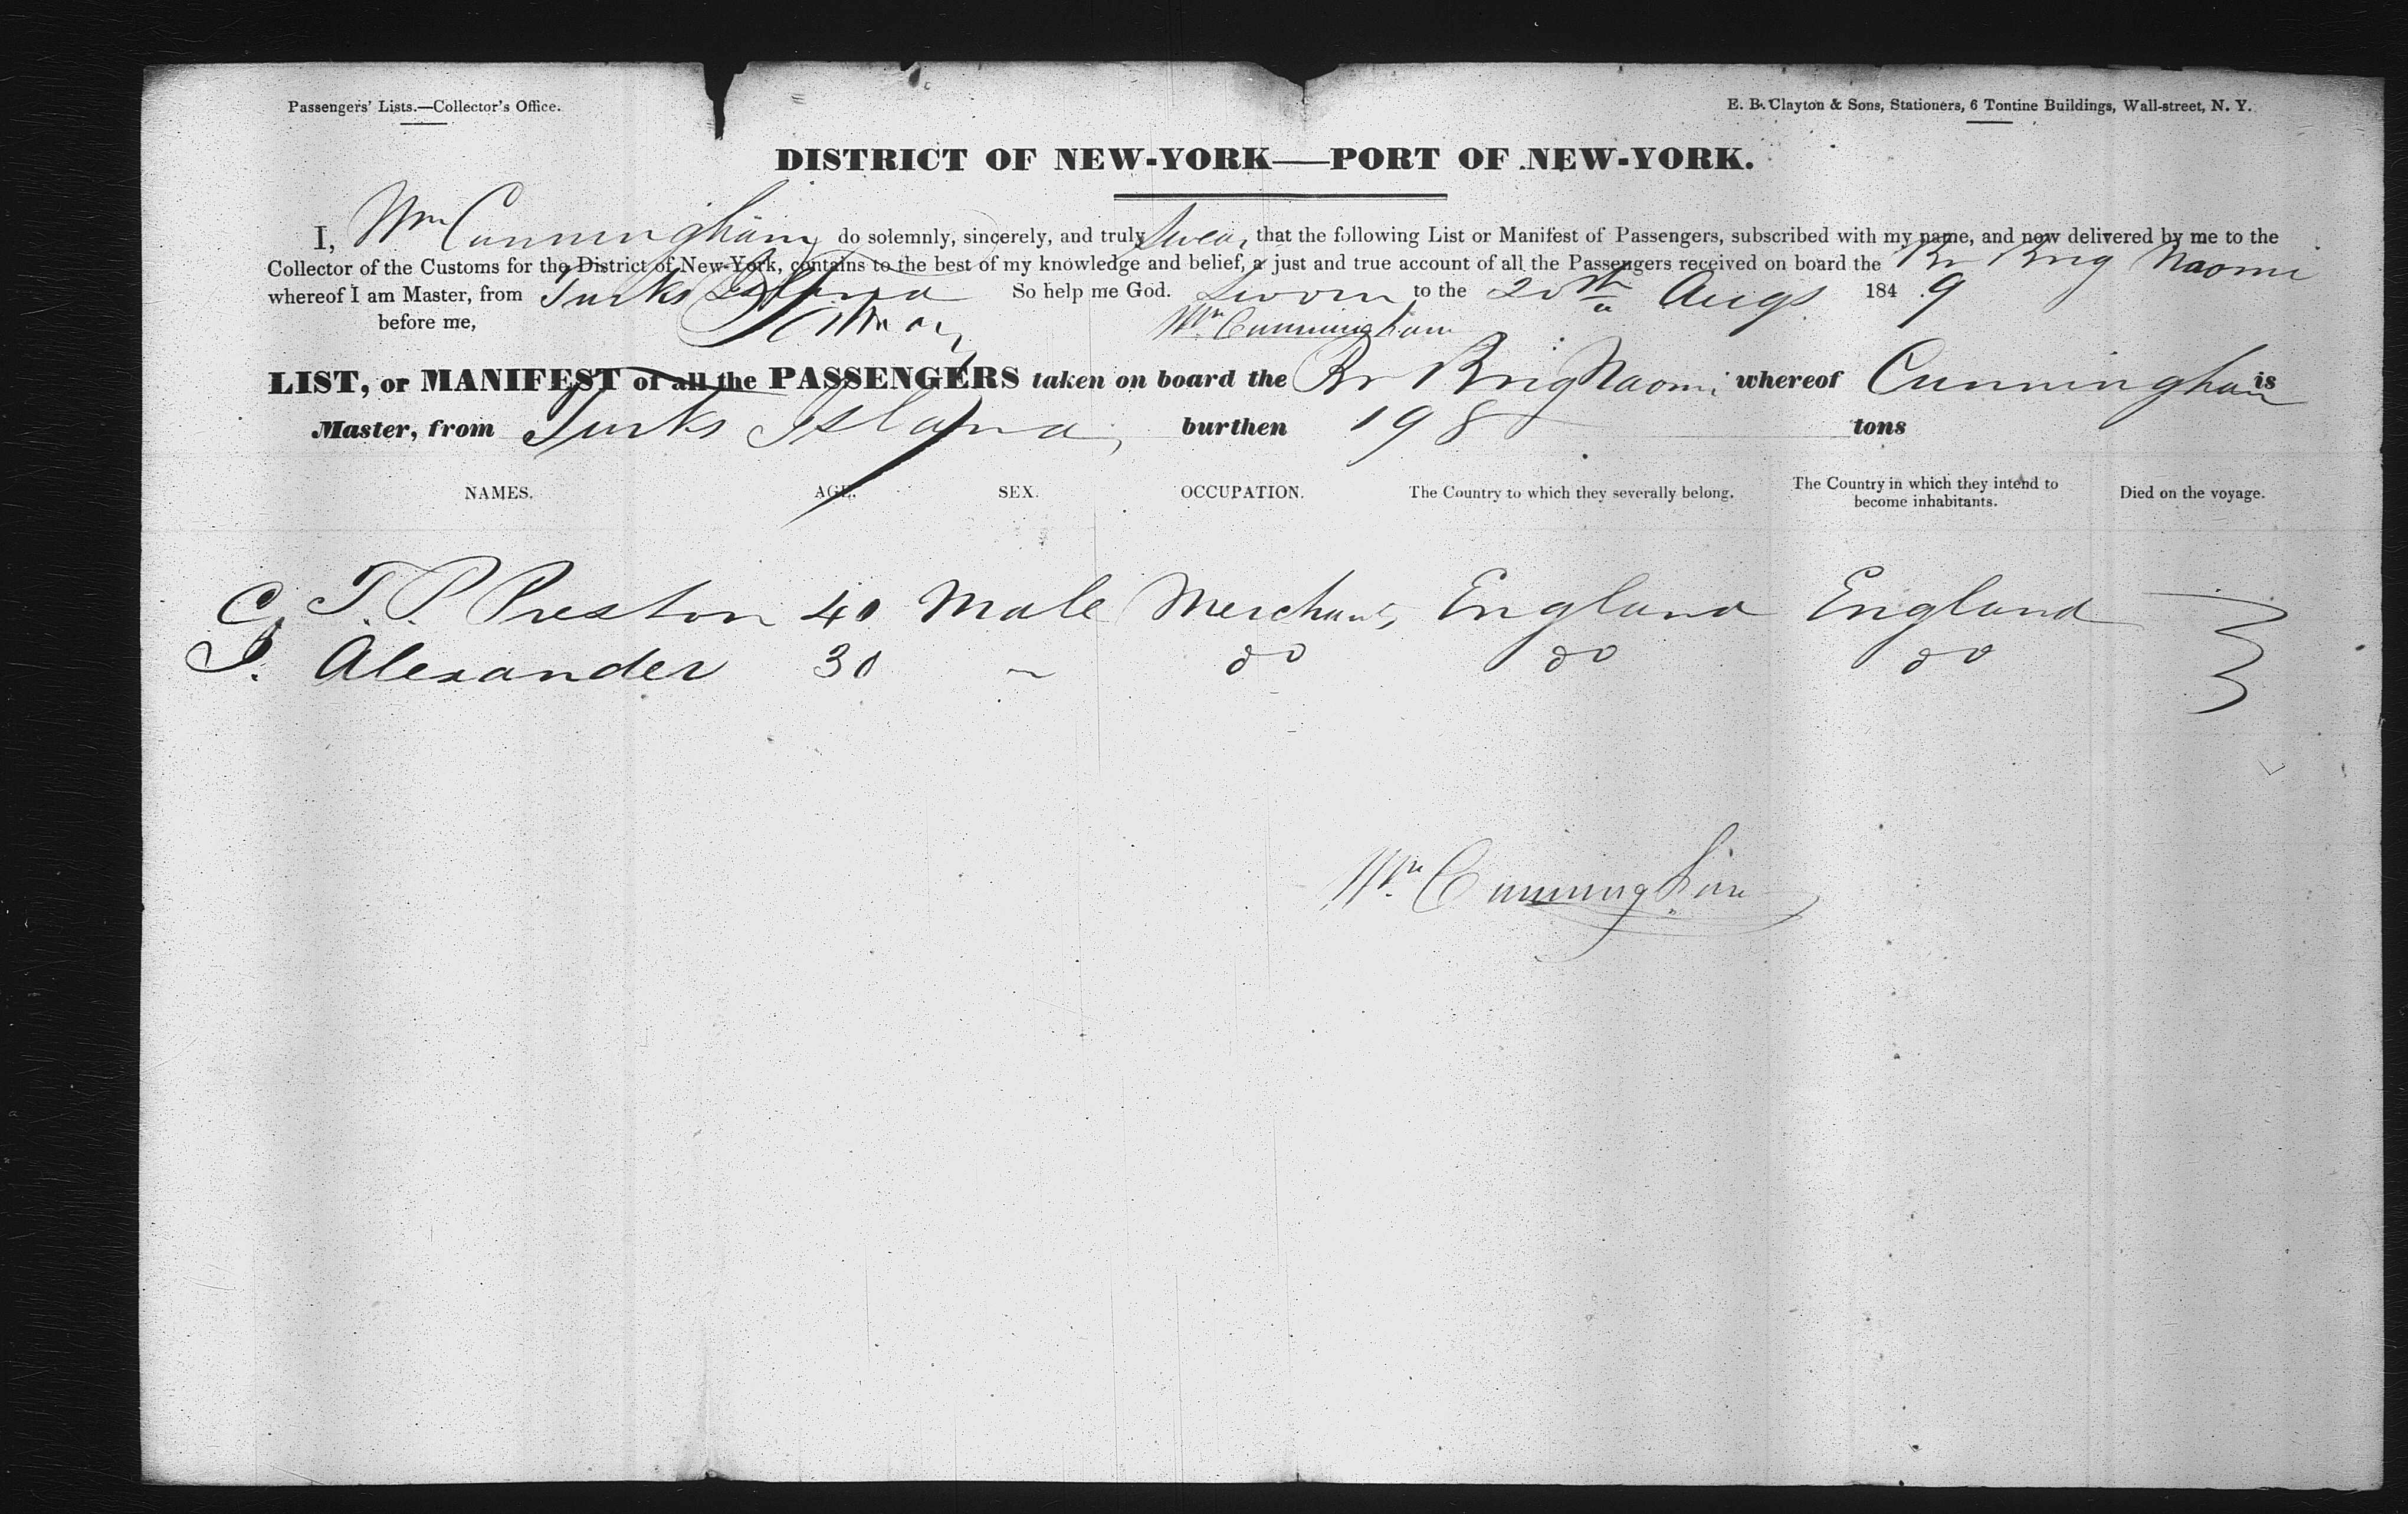 Passengers' Lists.—Collector's Office.
E. B. Clayton & Sons, Stationers, 6 Tontine Buildings, Wall-street, N. Y.
DISTRICT OF NEW-YORK—PORT OF NEW-YORK.
I, Wm Cunningham do solemnly, sincerely, and truly Swear that the following List or Manifest of Passengers, subscribed with my name, and now delivered by me to the
Collector of the Customs for the District of New-York, contains to the best of my knowledge and belief, a just and true account of all the Passengers received on board the Br Brig Naomi
whereof I am Master, from Turks Island So help me God. Sworn to the 20th Augs 1849
before me, Wm Cunningham
LIST, or MANIFEST of all the PASSENGERS taken on board the Br Brig Naomi whereof Cunningham is
Master, from Turks Island, burthen 198 tons
NAMES. AGE. SEX. OCCUPATION. The Country to which they severally belong. The Country in which they intend to become inhabitants. Died on the voyage.
T. P. Preston 40 Male Merchant England England
Alexander 30 do do do
Wm Cunningham